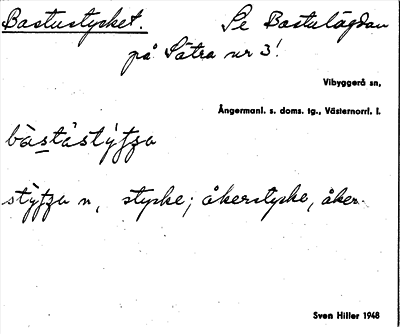 Bastustycket. Se Bastulägdan
på Sätra nr 3!
Vibyggerå sn,
Ångermanl. s. doms. tg., Västernorrl. l.
styke; åkerstycke, åker.
Sven Hiller 1948